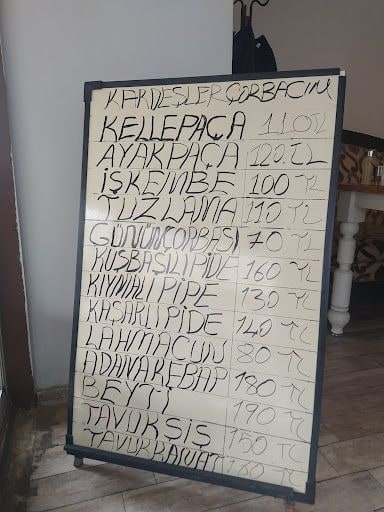 KARDEŞLER ÇORBACINI
KELLEPAÇA 110 TL
AYAKPAÇA 120 TL
İŞKEMBE 100 TL
TUZLAMA 110 TL
GÜNÜNÇORBASI 70 TL
KUŞBAŞILIPİDE 160 TL
KIYMALI PİPE 130 TL
KAŞARLI PİDE 140 TL
LAHMACUN 80 TL
ADANAKEBAP 180 TL
BEYTİ 190 TL
TAVUKŞİS 150 TL
TAVUKKANAT 160 TL